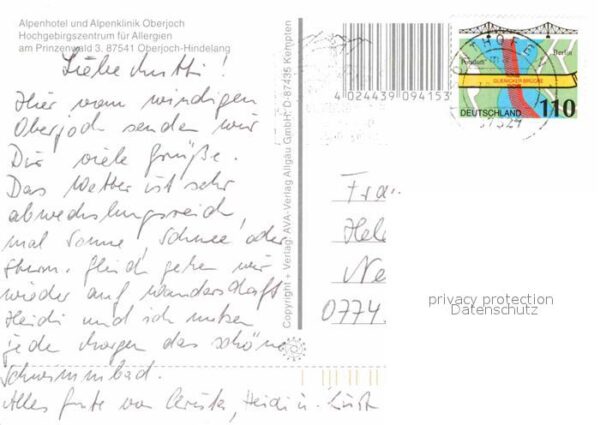 Alpenhotel und Alpenklinik Oberjoch
Hochgebirgszentrum für Allergien
am Prinzenwald 3, 87541 Oberjoch-Hindelang
Liebe Mutti!
Hier vom windigen
Oberjoch senden wir
Dir viele Grüße.
Das Wetter ist sehr
abwechslungsreich,
mal Sonne, Schnee oder
Sturm. Gleich gehen wir
wieder auf Wanderschaft
Heidi und ich nutzen
jede Morgen das schöne
Schwimmbad.
Alles Gute von Christa, Heidi u.
Copyright + Verlag: AVA-Verlag Allgäu GmbH · D-87435 Kempten
4 024439 094153
Potsdam
Berlin
GLIENICKER BRÜCKE
DEUTSCHLAND 110
Frau
Hel
Ne
0774.
privacy protection
Datenschutz